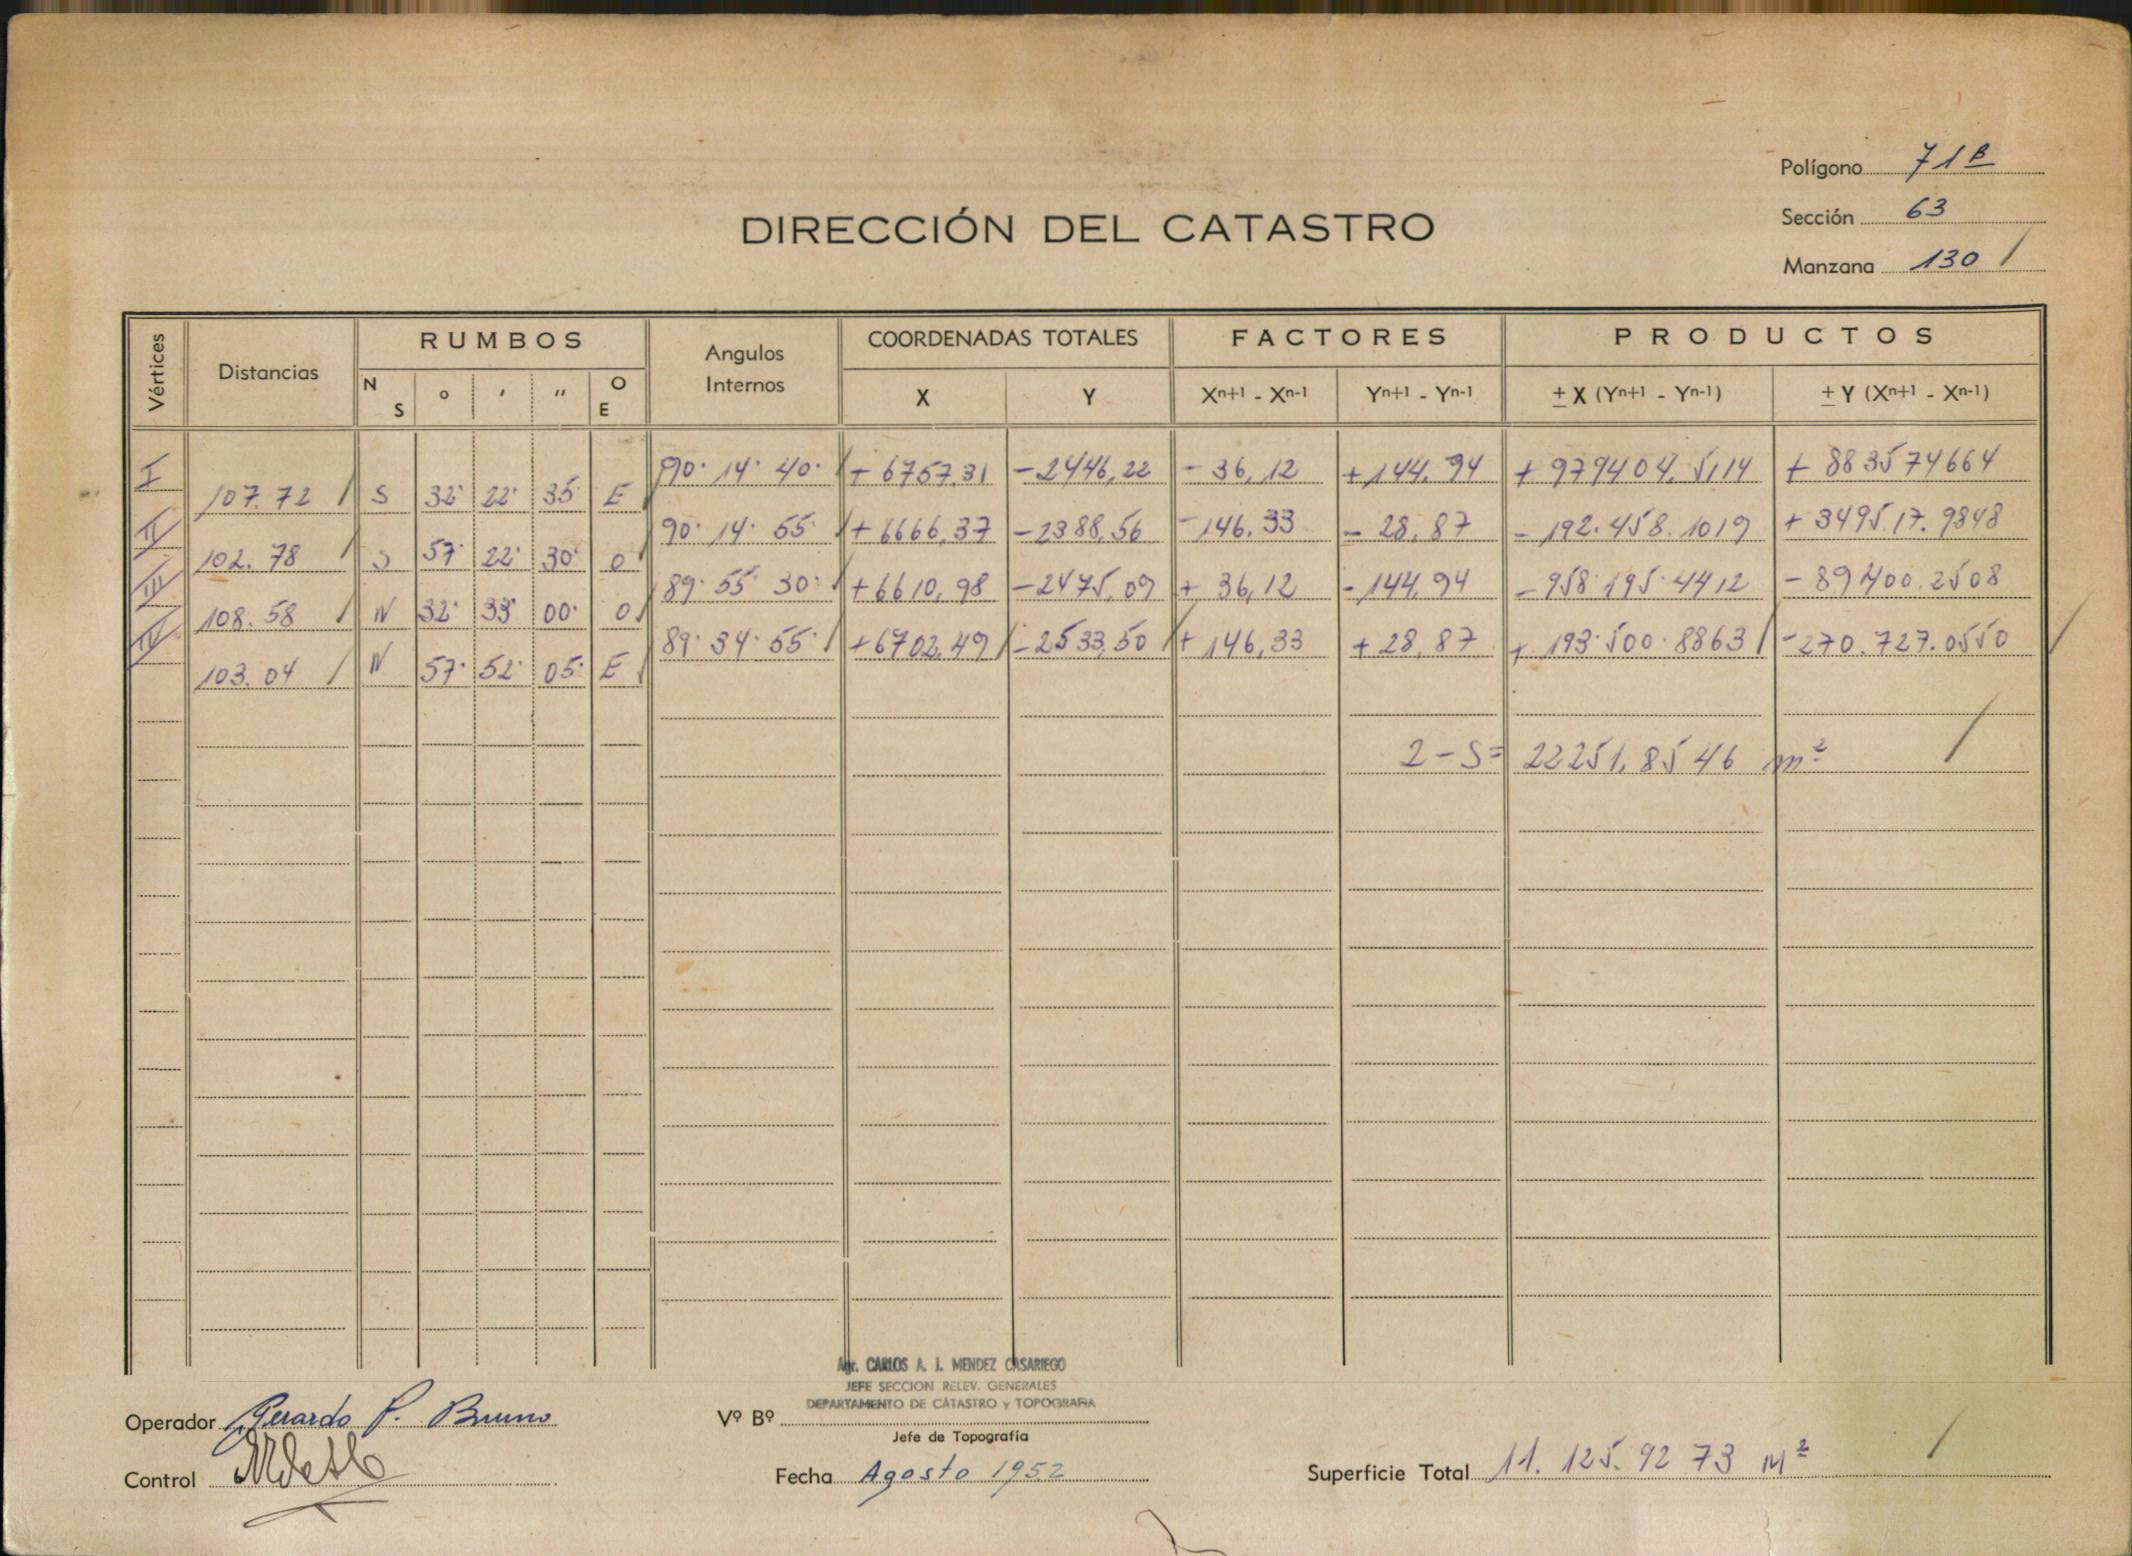 Polígono 71 B
Sección 63
Manzana 130
DIRECCIÓN DEL CATASTRO
Vértices Distancias RUMBOS Angulos Internos COORDENADAS TOTALES FACTORES PRODUCTOS
N S ° ' " O E X Y Xn+1 - Xn-1 Yn+1 - Yn-1 ± X (Yn+1 - Yn-1) ± Y (Xn+1 - Xn-1)
I 90° 14' 40" + 6757,31 - 2446,22 - 36,12 + 144,94 + 979404,5114 + 883574664
107.72 S 32° 22' 35" E
II 90° 14' 55" + 6666,37 - 2388,56 - 146,33 - 28,87 - 192.458.1019 + 3495.17.9848
102.78 S 57° 22' 30" O
III 89° 55' 30" + 6610,98 - 2475,09 + 36,12 - 144,94 - 958.195.4412 - 89400.2508
108.58 N 32° 33' 00" O
IV 89° 34' 55" + 6702,49 - 2533,50 + 146,33 + 28,87 + 193.500.8863 - 270.727.0550
103.04 N 57° 52' 05" E
2 - S = 22251,8546 m²
Agr. CARLOS A. J. MENDEZ CASARIEGO
JEFE SECCION RELEV. GENERALES
DEPARTAMENTO DE CATASTRO y TOPOGRAFIA
Operador Gerardo P. Bruno
Vº Bº
Jefe de Topografía
Control
Fecha Agosto 1952
Superficie Total 11.125.92 73 M²